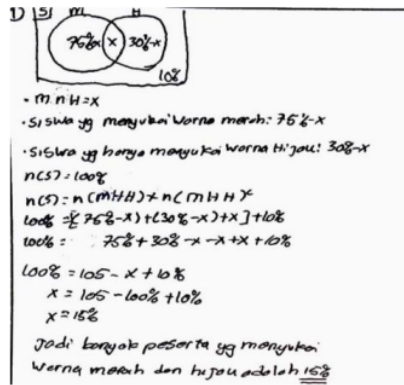 1) S M H
75%-x x 30%-x
10%
• m n H = x
• Siswa yg menyukai warna merah: 75%-x
• Siswa yg hanya menyukai warna Hijau: 30%-x
n(S) = 100%
n(S) = n(MHH) + n(MHH)x
100% = [75%-x) + (30%-x) + x] + 10%
100% = 75% + 30% - x - x + x + 10%
100% = 105 - x + 10%
x = 105 - 100% + 10%
x = 15%
Jadi banyak peserta yg menyukai
warna merah dan hijau adalah 15%